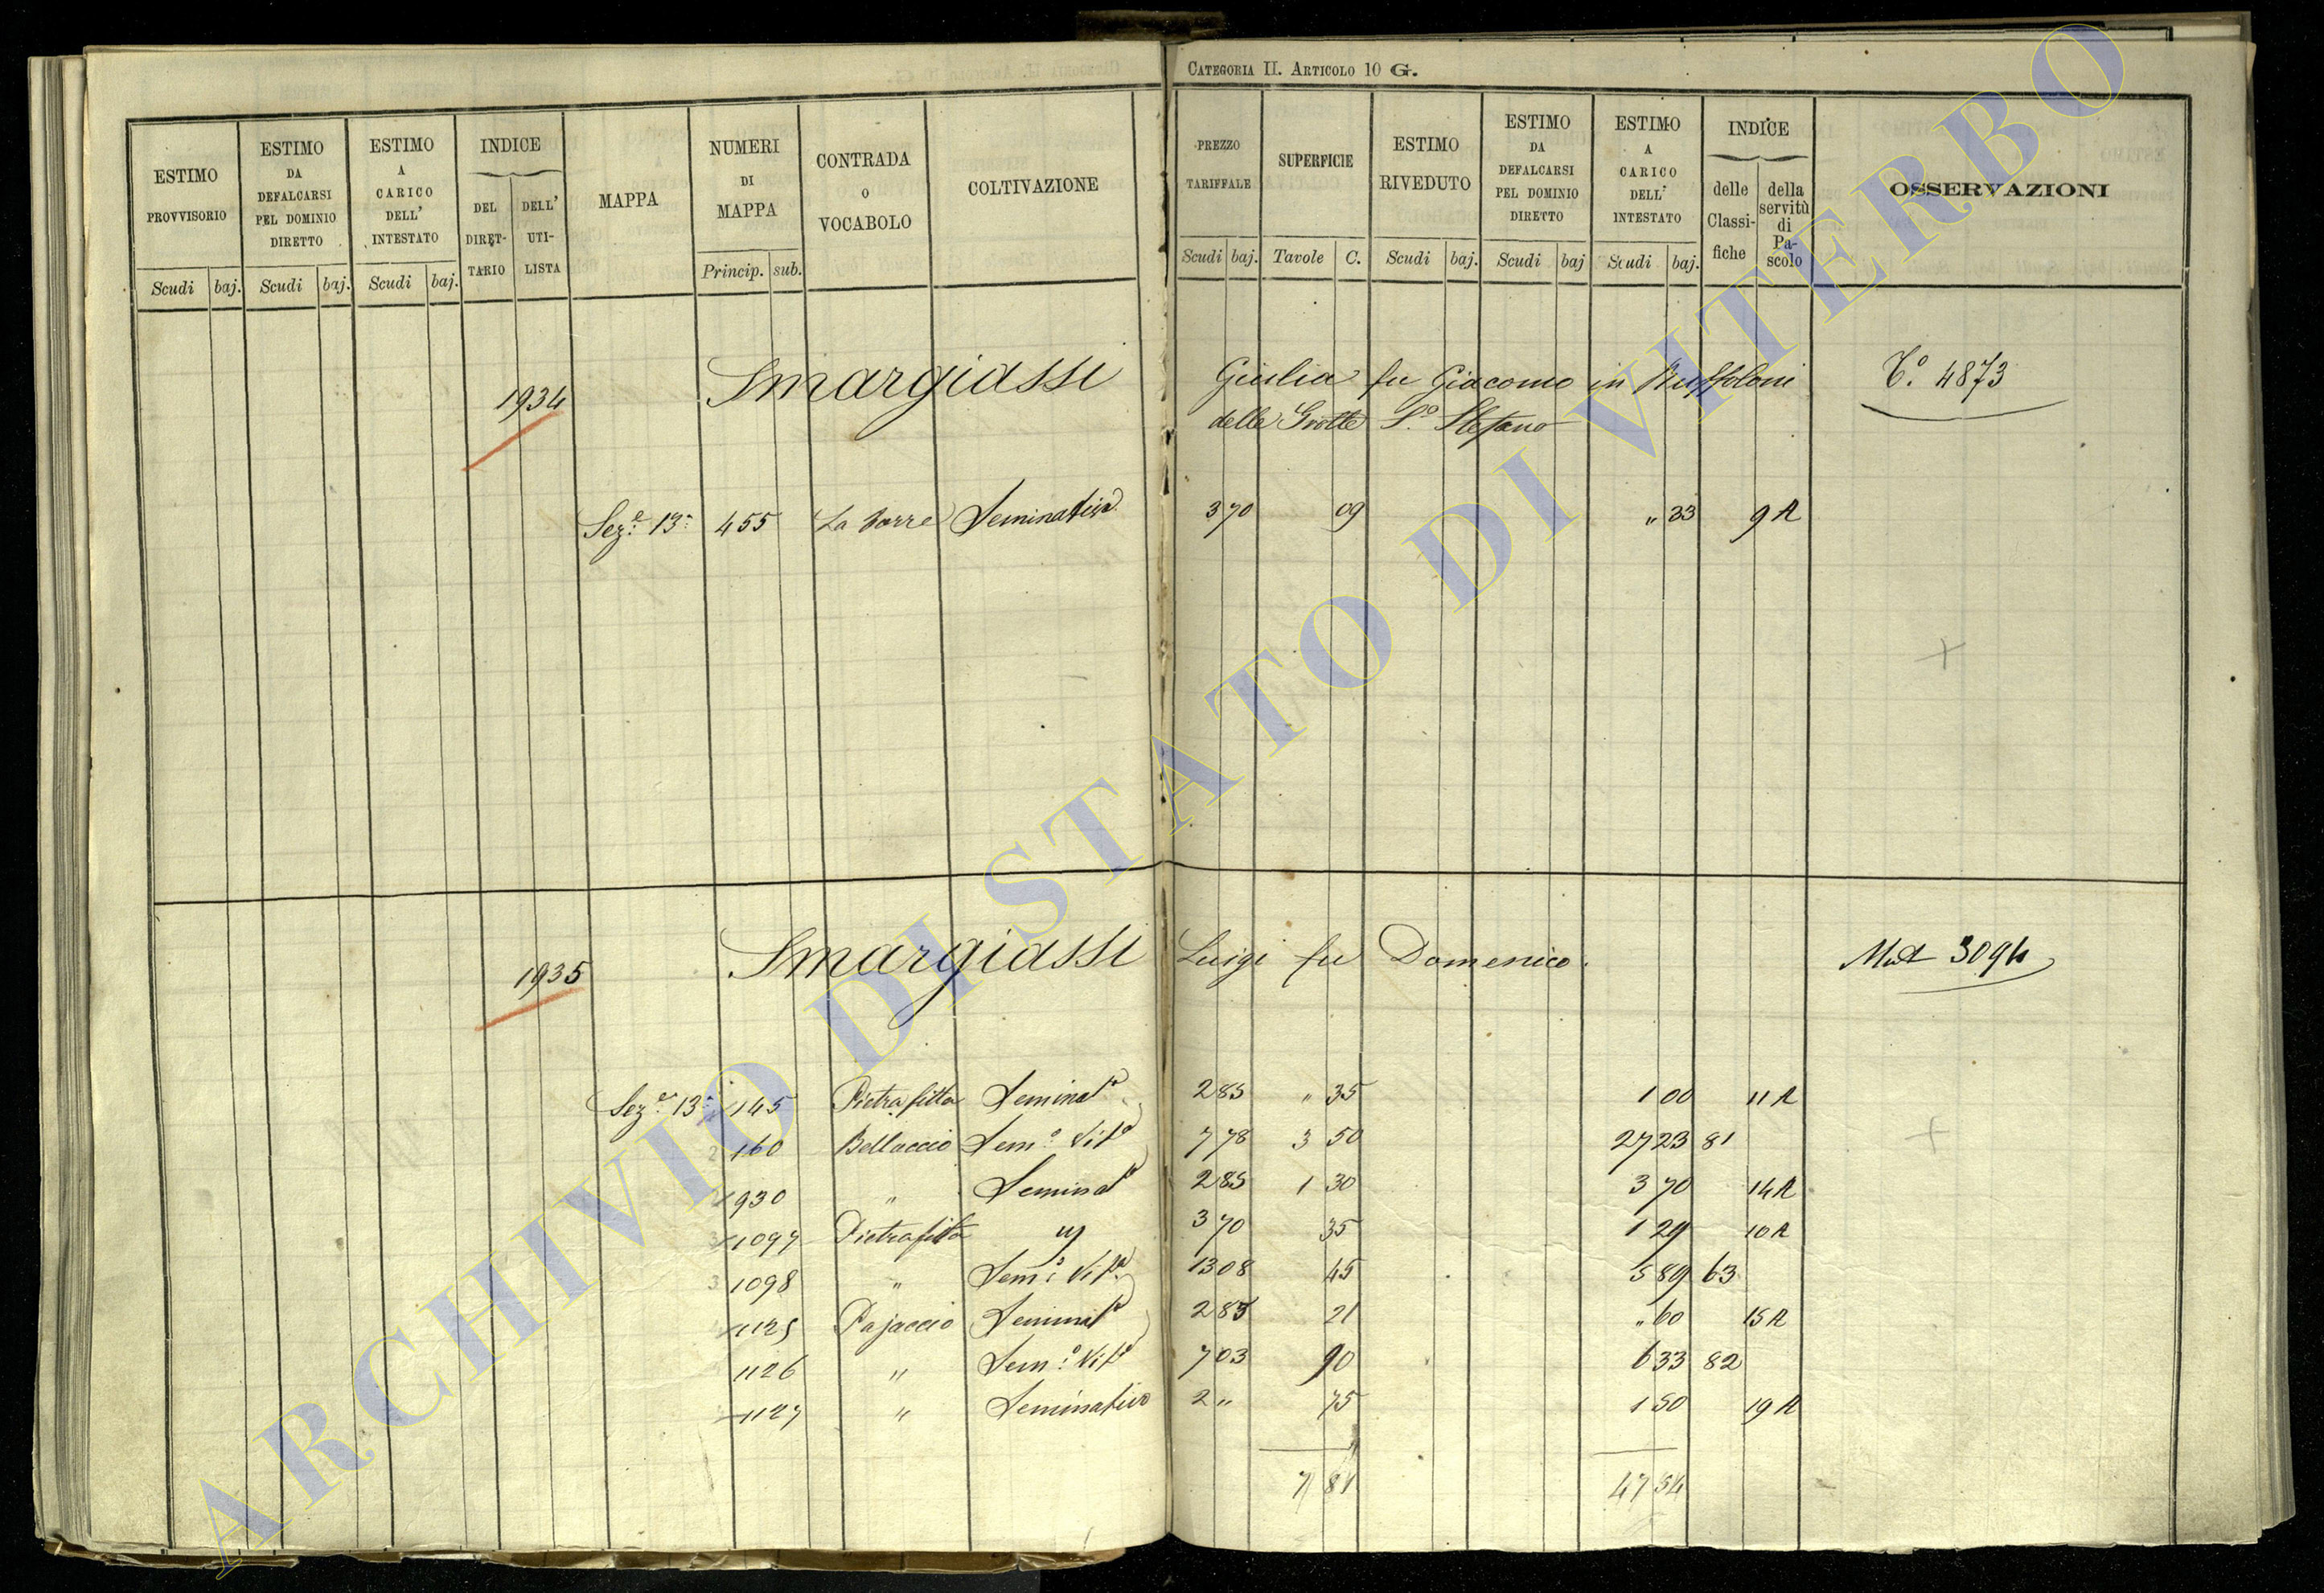 CATEGORIA II. ARTICOLO 10 G.
ESTIMO PROVVISORIO Scudi baj.
ESTIMO DA DEFALCARSI PEL DOMINIO DIRETTO Scudi baj.
ESTIMO A CARICO DELL' INTESTATO Scudi baj.
INDICE DEL DIRETTARIO DELL' UTILISTA
MAPPA
NUMERI DI MAPPA Princip. sub.
CONTRADA O VOCABOLO
COLTIVAZIONE
PREZZO TARIFFALE Scudi baj.
SUPERFICIE Tavole C.
ESTIMO RIVEDUTO Scudi baj.
ESTIMO DA DEFALCARSI PEL DOMINIO DIRETTO Scudi baj
ESTIMO A CARICO DELL' INTESTATO Scudi baj.
INDICE delle Classifiche della servitù di Pascolo
OSSERVAZIONI
1934 Smargiassi Giulia fu Giacomo in T.o 4873
delle Grotte S.o Stefano
Sez.e 13a 455 La Torre Seminativo 3 70 09 " 33 9 A
1935 Smargiassi Luigi fu Domenico. Mod 3094
Sez.e 13a 145 Pietrafitta Seminat.o 2 85 " 35 1 00 11 A
160 Bellaccio Sem.o Vit.o 7 78 3 50 27 23 81
930 " Seminat.o 2 85 1 30 3 70 14 A
1097 Pietrafitta 3 70 35 1 29 10 A
1098 " Sem.o Vit.o 13 08 45 5 89 63
1125 Pajaccio Seminat.o 2 85 21 " 60 15 A
1126 " Sem.o Vit.o 7 03 90 6 33 82
1127 " Seminativo 2 " 75 1 50 19 A
7 81 47 54
ARCHIVIO DI STATO DI VITERBO